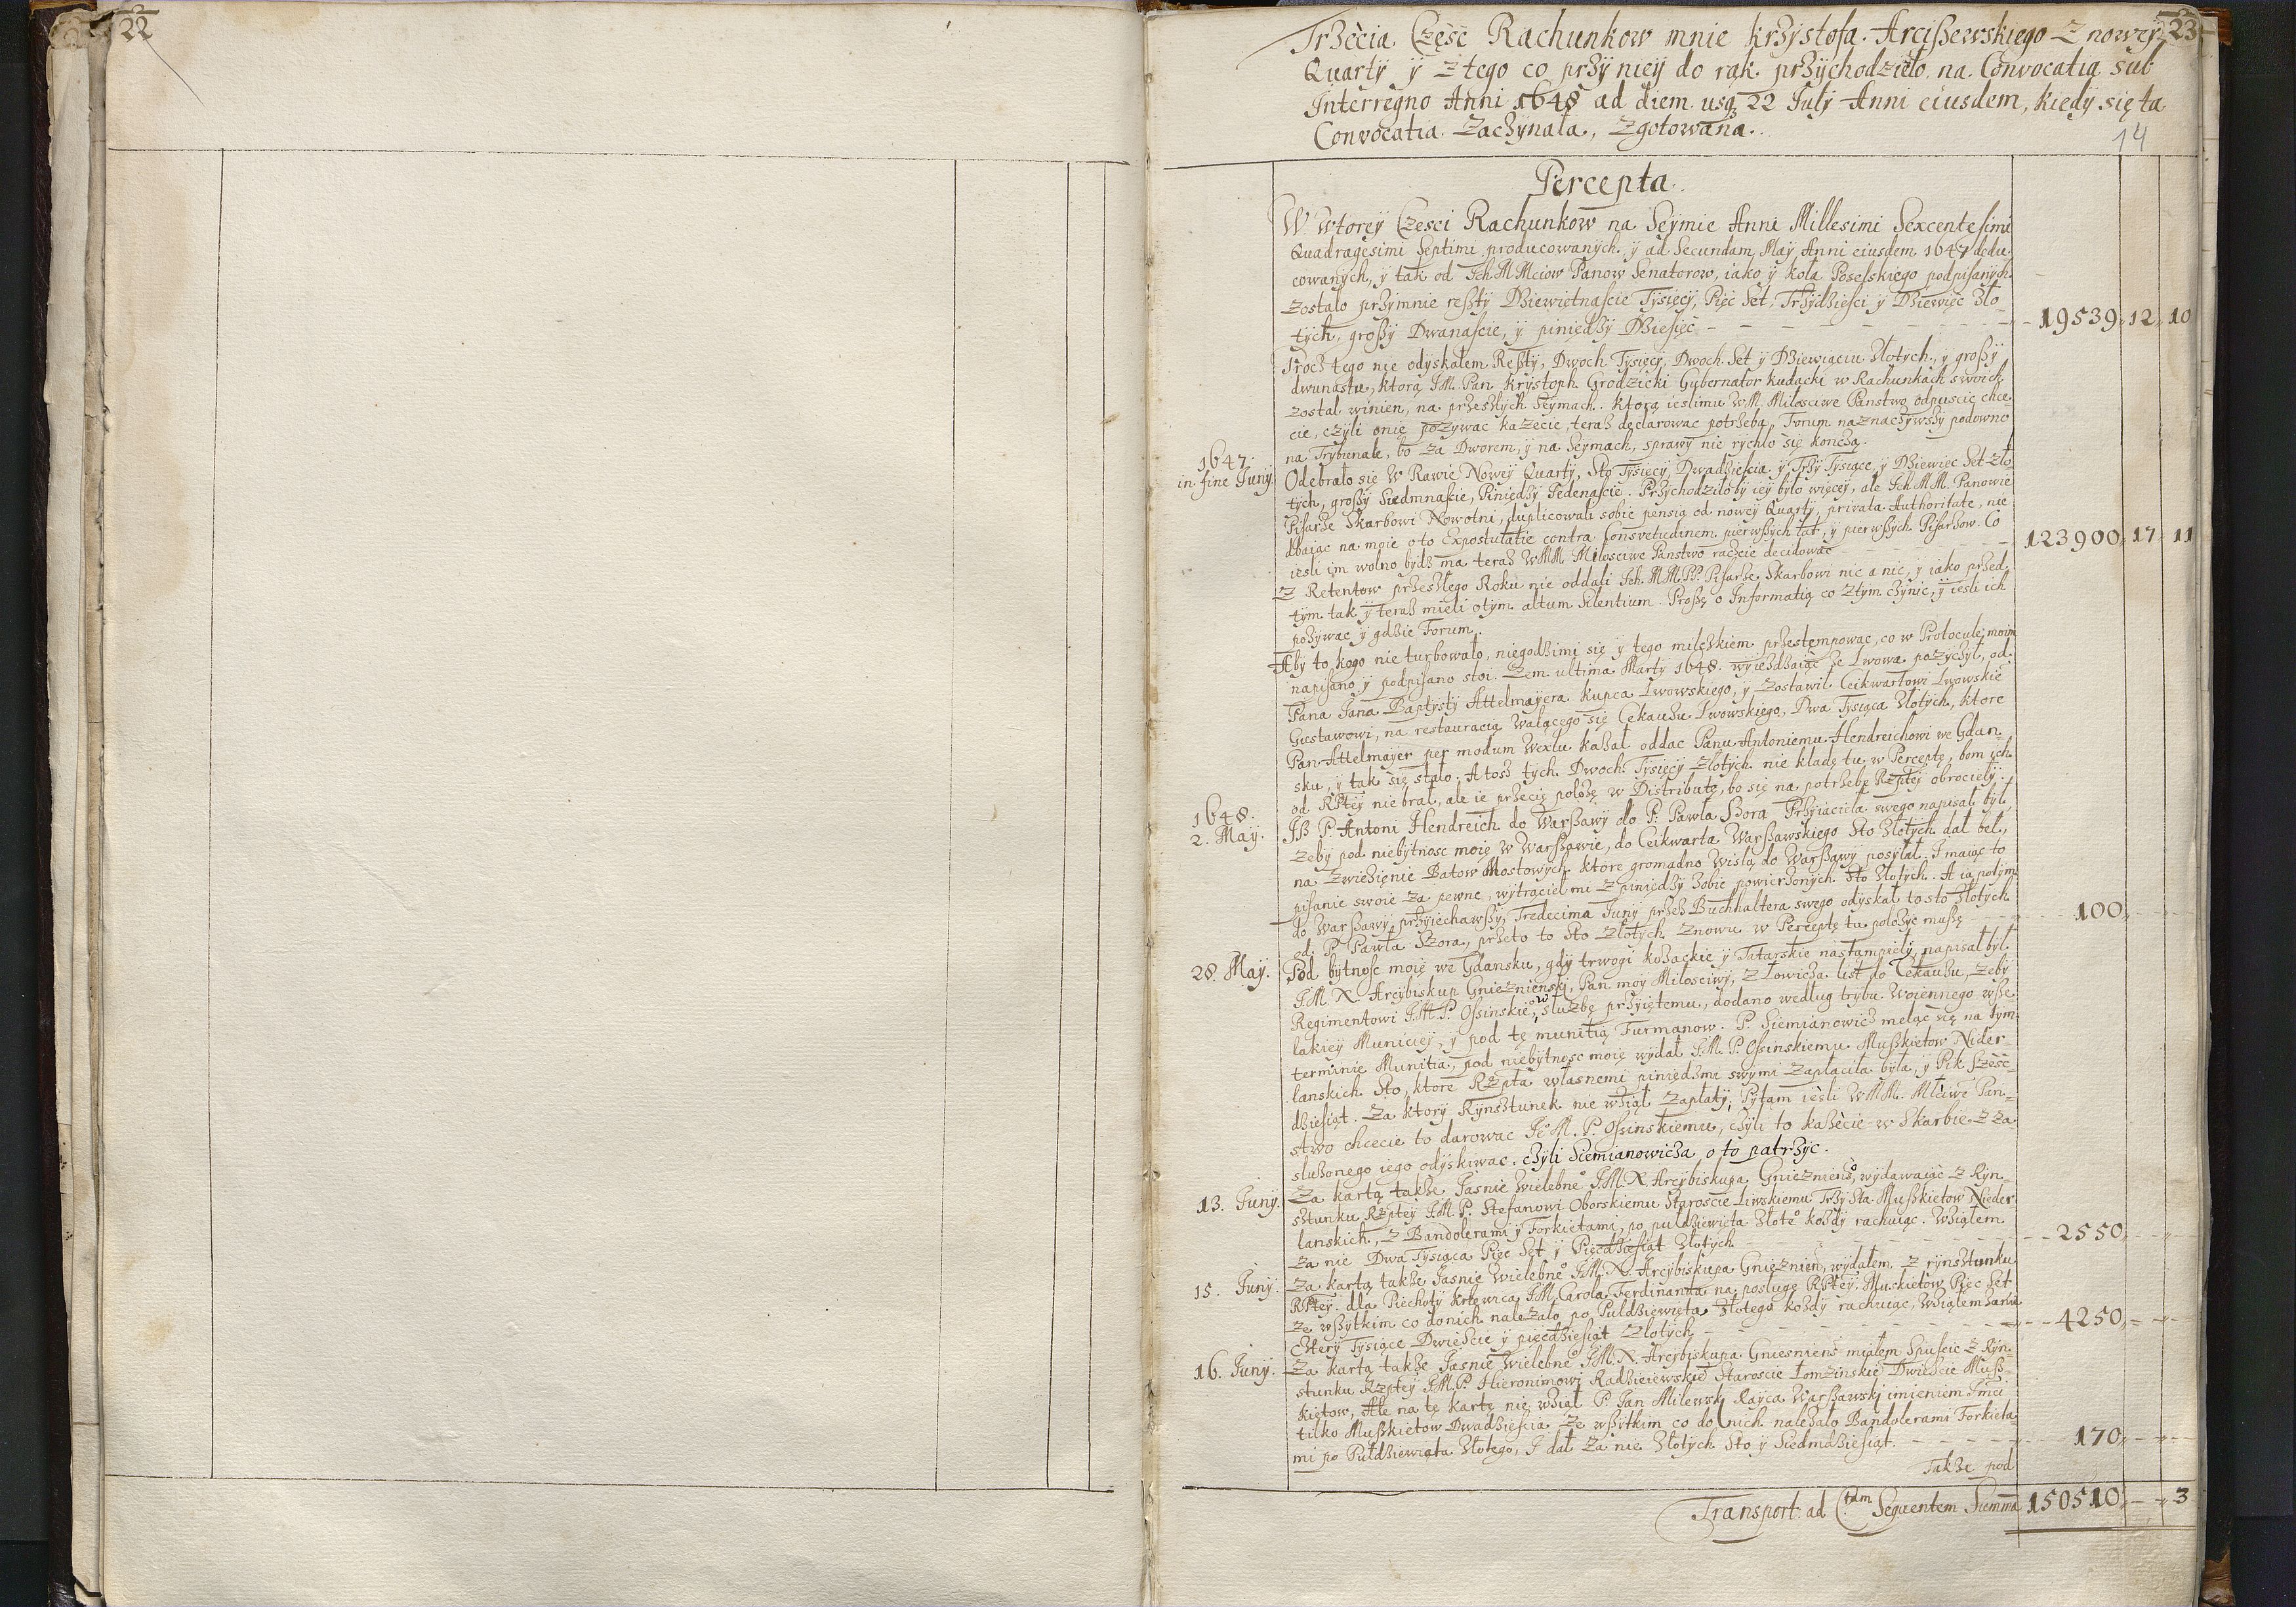 22
23
Trzecia Część Rachunkow mnie Krzystofa Arcißewskiego z nowey
Quarty y z tego co przy niey do rąk przychodzieło na Convocatią sub
Interregno Anni 1648 ad diem usq 22 July Anni eiusdem, kiedy się ta
Convocatia zaczynała, zgotowana.
14
Percepta.
W wtorey Częsci Rachunkow na Seymie Anni Millesimi Sexcentesimi
Quadragesimi Septimi producowanych y ad Secundam May Anni eiusdem 1647 dedu
cowanych, y tak od Ich MMciow Panow Senatorow, iako y koła Poselskiego podpisanych
zostało przymnie reßty Dziewiętnascie Tysięcy, Pięc Set Trzydziesci y Dziewięc Zło
tych, großy Dwanascie, y piniędzy Dziesięc 19539 12 10
Procz tego nie odyskałem Reßty, Dwoch Tysięcy, Dwoch Set y Dziewiąciu Złotych, y großy
dwunastu, ktorą J.M. Pan Krystoph Grodzicki Gubernator Kudacki w Rachunkach swoich
został winien, na przeszłych Seymach. Ktorą ieslimu WM Miłosciwe Państwo odpuscic chce
cie, czyli onię pozywac każecie, teraz declarowac potrzeba, Forum naznaczywszy podowno
na Trybunale, bo za Dworem, y na Seymach, sprawy nie rychło się konczą.
1647.
in fine Juny. Odebrało się w Rawie Nowey Quarty, Sto Tysięcy Dwadziescia y Trzy Tysiące, y Dziewięc Set Zło
tych, großy Siedmnascie, Piniędzy Jedenascie. Przychodziłoby iey było więcey, ale Ich MM. Panowie
Pisarze Skarbowi Nowotni, duplicowali sobie pensią od nowey Quarty, privata Authoritate, nie
dbaiąc na moie oto Expostulatie contra Consvetudinem pierwßych lat, y pierwßych Pisarzow. Co
iesli im wolno bydz ma teraz WMM Miłosciwe Państwo raczcie decidowac 123900 17 11
Z Retentow przeszłego Roku nie oddali Ich MM PP. Pisarze Skarbowi nic a nic, y iako przed
tym tak y teraz mieli otym altum Silentium. Proßę o Informatią co ztym czynic, y iesli ich
pozywac y gdzie Forum.
Aby to kogo nie turbowało, niegodzimi się y tego milczkiem przestempowac, co w Protocule moim
napisano y podpisano stoi. Zem ultima Marty 1648. wyiezdzaiąc ze Lwowa pozyczył, od
Pana Jana Baptysty Attelmayera kupca Lwowskiego, y zostawił Ceikwartowi Lwowskie
Gustawowi, na restauracią walącego się Cekauzu Lwowskiego, Dwa Tysiąca Złotych, ktore
Pan Attelmayer per modum Wexlu kazał oddac Panu Antoniemu Hendreichowi we Gdan
sku, y tak się stało. A tosz tych Dwoch Tysięcy Złotych nie kładę tu w Perceptę, bom ich
od RPtey nie brał, ale ie przecię położę w Distributę, bo się na potrzebę Rzptey obrocieły.
1648.
2. May. Iß P. Antoni Hendreich do Warßawy do P. Pawła Szora Przyiaciela swego napisał był
zeby pod niebytnosc moię w Warßawie, do Ceikwarta Warßawskiego Sto Złotych dał beł,
na zwiezięnie Batow Mostowych ktore gromadno Wisłą do Warßawy posyłał. I maiąc to
pisanie swoie za pewne, wytrącieł mi z piniędzy sobie powierzonych Sto Złotych. A ia potym
do Warßawy przyiechawszy, Tredecima Juny przez Buchhaltera swego odyskał to sto Złotych
od P. Pawła Szora, przeto to Sto Złotych znowu w Perceptę tu położyc mußę 100
28. May. Pod bytnosc moię we Gdansku, gdy trwogi kozackie y Tatarskie nastąmpieły, napisał był
J.M.X. Arcybiskup Gniezniensky, Pan moy Miłosciwy, z Łowicza list do Cekauzu, zeby
Regimentowi J.M.P. Osinskieo, w służbę przyiętemu, dodano według trybu woiennego wße
lakiey Municiey, y pod tę munitią Furmanow. P. Siemianowicz meląc się na tym
terminie Munitią, pod niebytnosc moię wydał J.M.P. Osinskiemu Mußkietow Nider
lanskich Sto, ktore Rzpta własnemi piniędzmi swymi zapłaciła była, y Pik Szesc
dziesiąt. Za ktory Rynsztunek nie wział zapłaty, Pytam iesli WMM. Mciwe Pan
stwo chcecie to darowac JeoM. P. Osinskiemu, czyli to każecie w Skarbie z za
służonego iego odyskiwac, czyli Siemianowicza o to patrzyc.
13. Juny. Za kartą takze Jasnie Wielebneo J.M.X. Arcybiskupa Gnieznienso, wydawaiąc z Ryn
sztunku Rzptey J.M.P. Stefanowi Oborskiemu Staroscie Liwskiemu Trzy Sta Mußkietow Nieder
lanskich, z Bandolerami y Forkietami, po puldziewięta Złoteo kozdy rachuiąc. Wziąłem
za nie Dwa Tysiąca Pięc Set y Pięcdziesiąt Złotych 2550
15. Juny. Za kartą takze Jasnie Wielebneo J.M.X. Arcybiskupa Gnieznień, wydałem z rynsztunku
RPtey. dla Piechoty krlewica JM Carola Ferdinanta na posługę RPtey. Muskietow Pięc Set
ze wßytkim co donich należało po Puldziewięta Złotego kozdy rachuiąc, Wziąłem zanie
Cztery Tysiące Dwiescie y pięcdziesiąt Złotych 4250
16. Juny. Za kartą takze Jasnie Wielebneo J.M.X. Arcybiskupa Gniesnienso miałem spuscic z Ryn
stunku Rzptey J.M.P. Hieronimowi Radzieiewskieo Staroscie Łomzinskieo Dwiescie Muß
kietow, Ale na tę kartę nie wział P. Jan Milewsky Rayca Warßawsky imieniem Jmci
tilko Mußkietow Dwadziescia ze wßytkim co do nich należało Bandolerami Forkieta
mi po Puldziewięta Złotego, I dał za nie Złotych Sto y Siedmdziesiąt. 170
Takze pod
Transport ad Ctam Sequentem Summa 150510 3